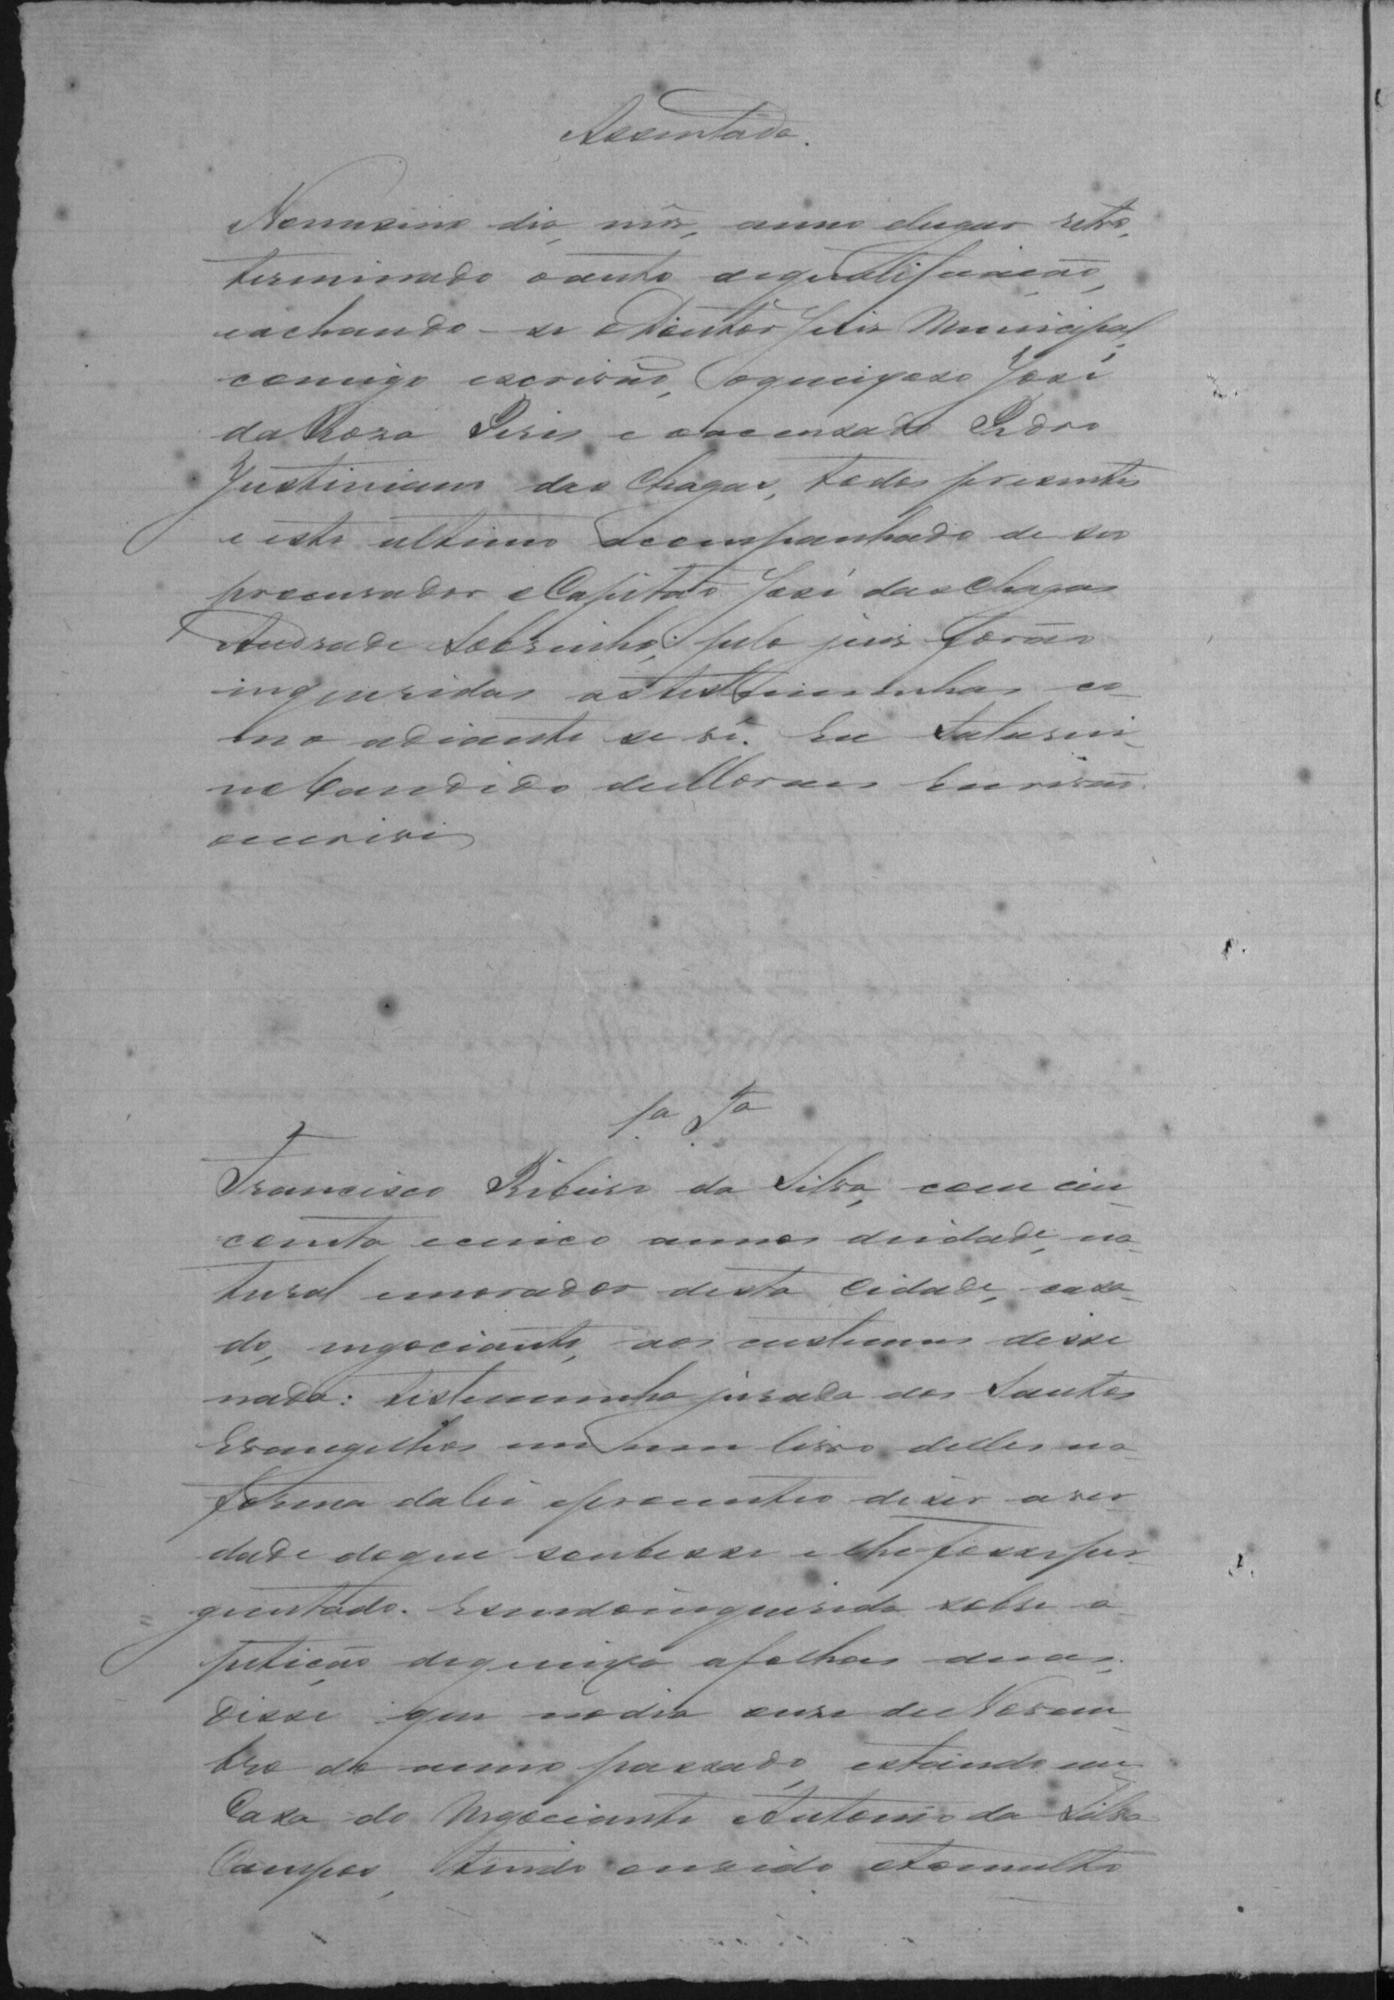 Assentada.
No mesmo dia, mês, anno e lugar retro,
terminado o auto de qualificação,
e achando-se o Doutor Juis Municipal,
comigo escrivão, o queixoso José
da Roza Peris e o accuzado Pedro
Justiniano das Chagas, todos presentes
e este ultimo acompanhado de seo
procurador o Capitão José das Chagas
Andrade Sobrinho; pelo juis forão
inqueridas as testimunhas co-
mo adiante se vê. Eu Saturni-
no Candido de Moraes Escrivão
o escrivi
1.a T.a
Francisco Ribeiro da Silva, com cin-
coenta e cinco annos de idade, na-
tural e morador desta Cidade, casa-
do, negociante, aos custumes disse
nada: testemunha jurada aos Santos
Evangelhos em um livro delles na
forma da lei e prometteo dizer a ver-
dade do que soubesse e lhe fosse per-
guntado. E sendo inquerida sobre a
petição de queixa a folhas duas,
disse que no dia onze de Novem-
bro do anno passado, estando em
Casa do Negociante Antonio da Silva
Campos, tendo ouvido o tomulto